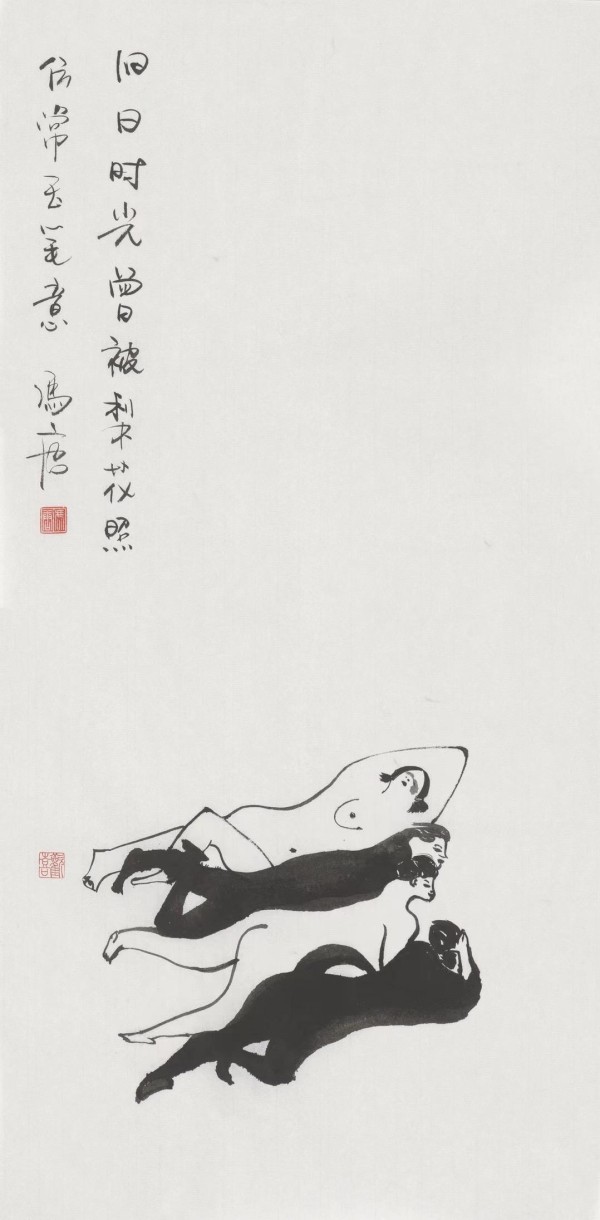 旧日时光曾被梨花照
仿常玉笔意 冯唐